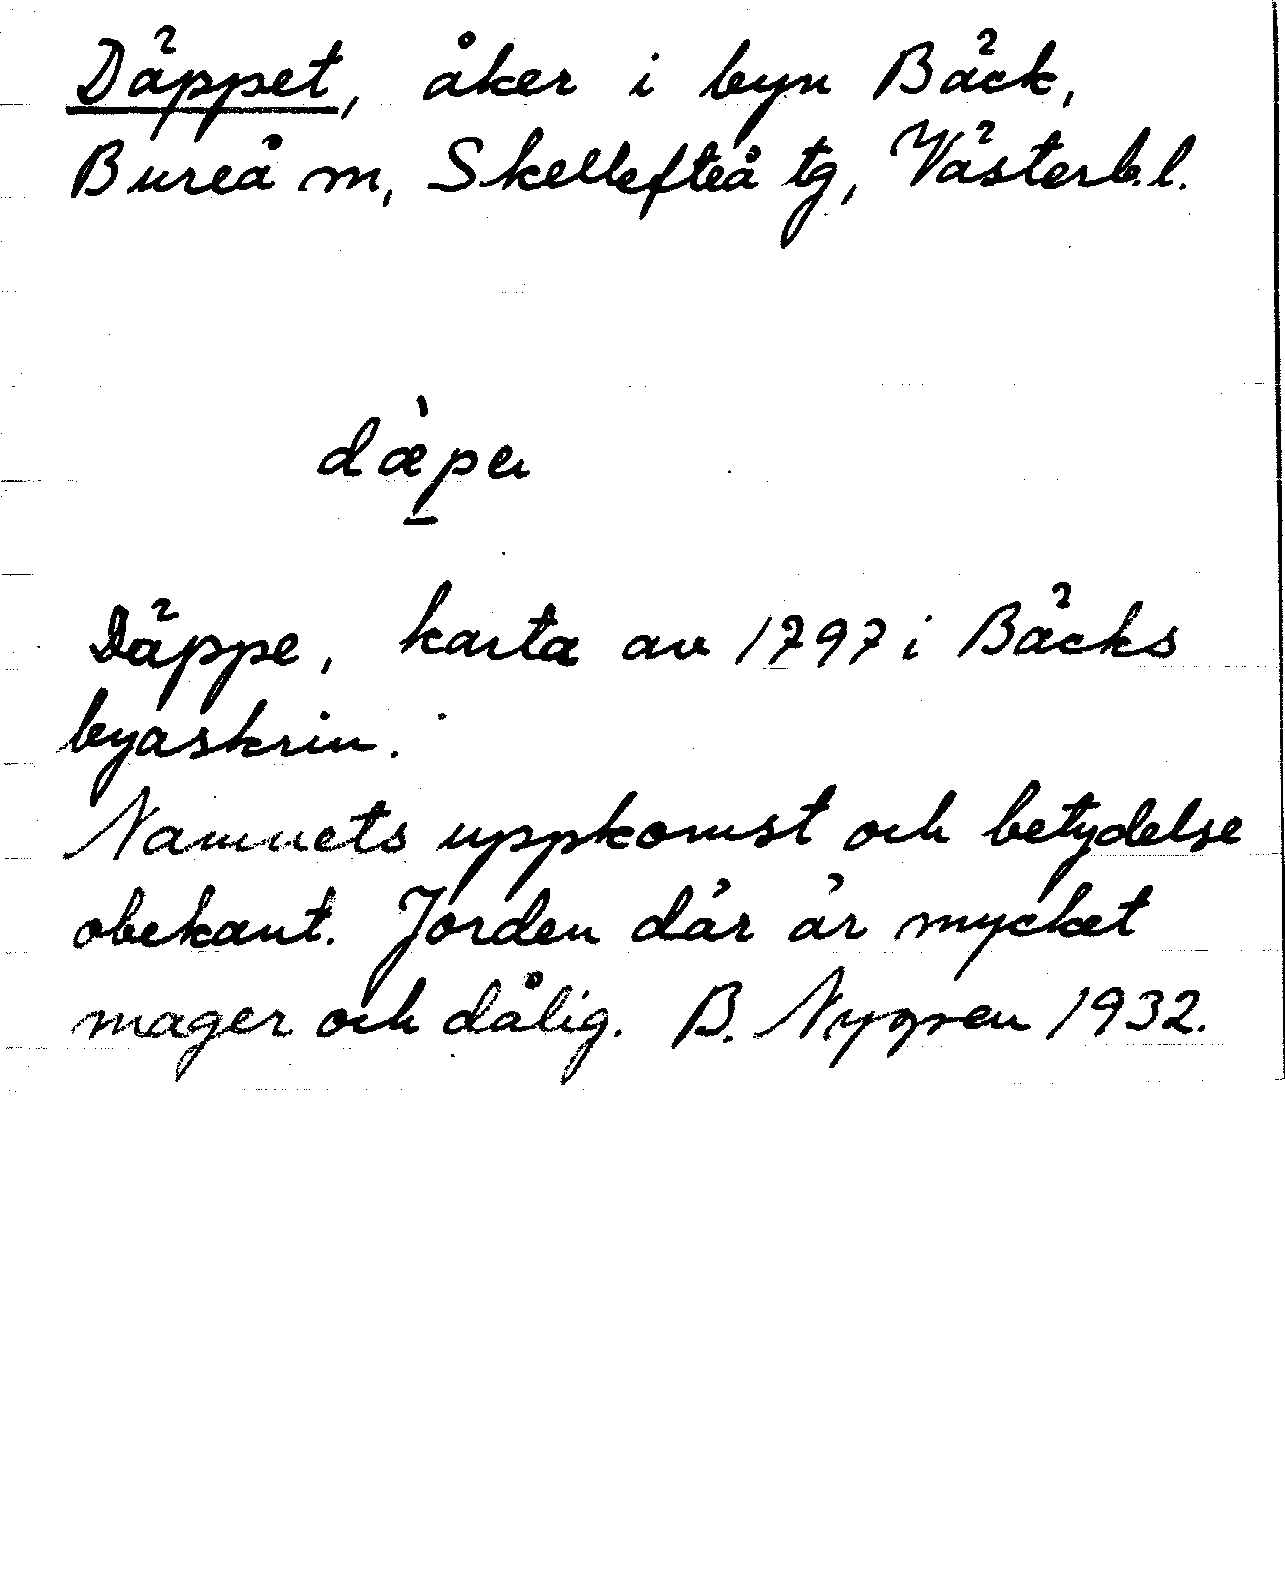 Däppet, åker i byn Bäck,
Bureå m, Skellefteå tg, Västerb.l.
dæ̀pe̠r
Däppe, karta av 1797 i Bäcks
byaskrin.
Namnets uppkomst och betydelse
obekant. Jorden där är mycket
mager och dålig. B. Nygren 1932.